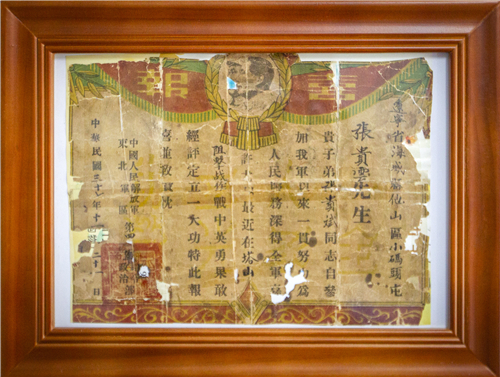 喜報
遼寧省海城山區小碼頭屯
張貴先生
貴子弟張貴斌同志自參
加我軍以來一貫努力為
人民服務深得全軍
許最近在塔山
阻擊作戰中英勇果敢
經評定立一大功特此報
喜並致敬祝
中國人民解放軍第四政治部
東北軍區
中華民國三十年十月二十日